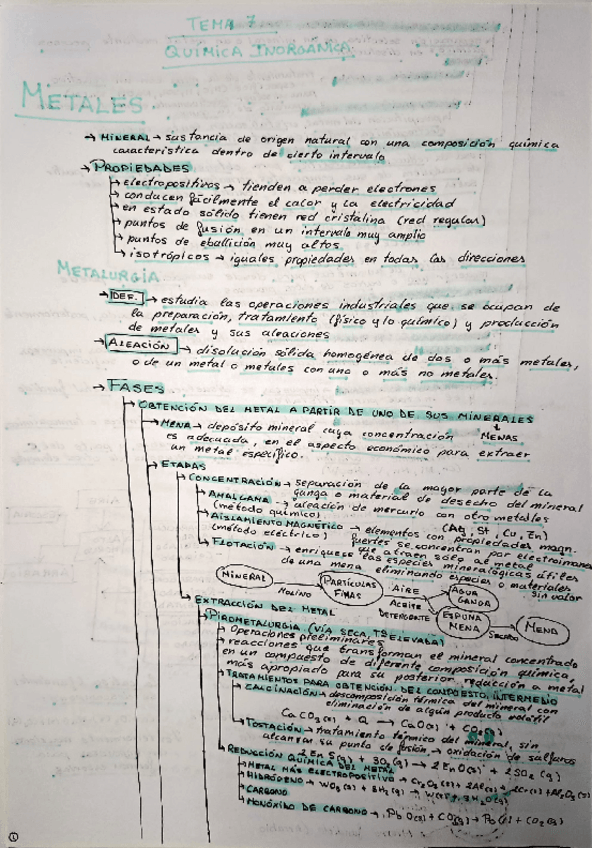 TEMA 7
QUÍMICA INORGÁNICA
METALES
→ MINERAL → sustancia de origen natural con una composición química
característica dentro de cierto intervalo
→ PROPIEDADES
→ electropositivos → tienden a perder electrones
→ conducen fácilmente el calor y la electricidad
→ en estado sólido tienen red cristalina (red regular)
→ puntos de fusión en un intervalo muy amplio
→ puntos de ebullición muy altos
→ isotrópicos → iguales propiedades en todas las direcciones
METALURGIA
→ DEF. → estudia las operaciones industriales que se ocupan de
la preparación, tratamiento (físico y/o químico) y producción
de metales y sus aleaciones
→ ALEACIÓN → disolución sólida homogénea de dos o más metales,
o de un metal o metales con uno o más no metales.
→ FASES
→ OBTENCIÓN DEL METAL A PARTIR DE UNO DE SUS MINERALES
↓ MENAS
→ MENA → depósito mineral cuya concentración
es adecuada, en el aspecto económico para extraer
un metal específico.
→ ETAPAS
→ CONCENTRACIÓN → separación de la mayor parte de la
ganga o material de desecho del mineral
→ AMALGAMA → aleación de mercurio con otro metales
(método químico) (Ag, Cu, Zn)
→ AISLAMIENTO MAGNÉTICO → elementos con propiedades magn.
(método eléctrico) fuertes se concentran por electroimanes
que atraen sólo al metal
→ FLOTACIÓN → enriquece las especies mineralógicas útiles
de una mena eliminando especies o materiales
sin valor
MINERAL → MOLINO → PARTÍCULAS FINAS → AIRE ACEITE DETERGENTE → AGUA GANGA
ESPUMA MENA → SECADO → MENA
→ EXTRACCIÓN DEL METAL
→ PIROMETALURGIA (VÍA SECA, Tª ELEVADA)
→ Operaciones preliminares
→ reacciones que transforman el mineral concentrado
en un compuesto de diferente composición química,
más apropiado para su posterior reducción a metal
→ TRATAMIENTOS PARA OBTENCIÓN DEL COMPUESTO INTERMEDIO
→ CALCINACIÓN → descomposición térmica del mineral con
eliminación de algún producto volátil
CaCO3(s) + Q → CaO(s) + CO2(g)
→ TOSTACIÓN → tratamiento térmico del mineral, sin
alcanzar su punto de fusión → oxidación de sulfuros
2ZnS(s) + 3O2(g) → 2ZnO(s) + 2SO2(g)
→ REDUCCIÓN QUÍMICA DEL METAL
→ METAL MÁS ELECTROPOSITIVO → Cr2O3(s) + 2Al(s) → 2Cr(s) + Al2O3(s)
→ HIDRÓGENO → WO3(s) + 3H2(g) → W(s) + 3H2O(g)
→ CARBONO
→ MONÓXIDO DE CARBONO → PbO(s) + CO(g) → Pb(s) + CO2(g)
①